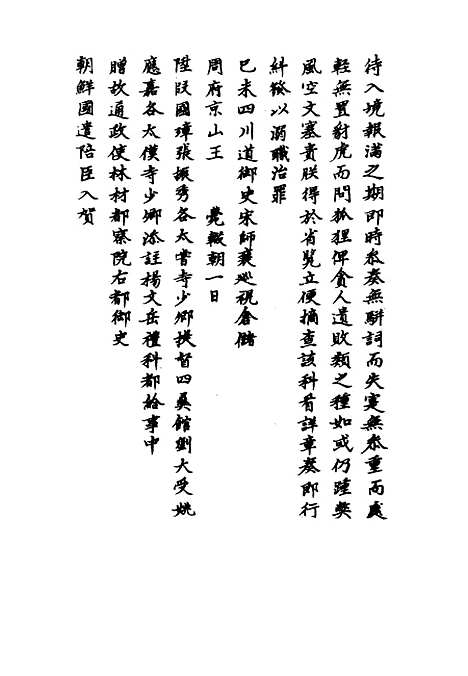 待入境報滿之期即時參奏無駢詞而失寔無參重而處
輕無置豺虎而問狐狸俾貪人遺敗類之種如或仍踵獘
風空文塞責朕得於省覧立便摘查該科看詳章奏即行
糾發以溺職治罪
己未四川道御史宋師襄巡視倉儲
周府京山王　薨輟朝一日
陞叚國璋張振秀各太常寺少卿提督四夷館劉大受姚
應嘉各太僕寺少卿添註楊文岳禮科都給事中
贈故通政使林材都察院右都御史
朝鮮國遣陪臣入贺